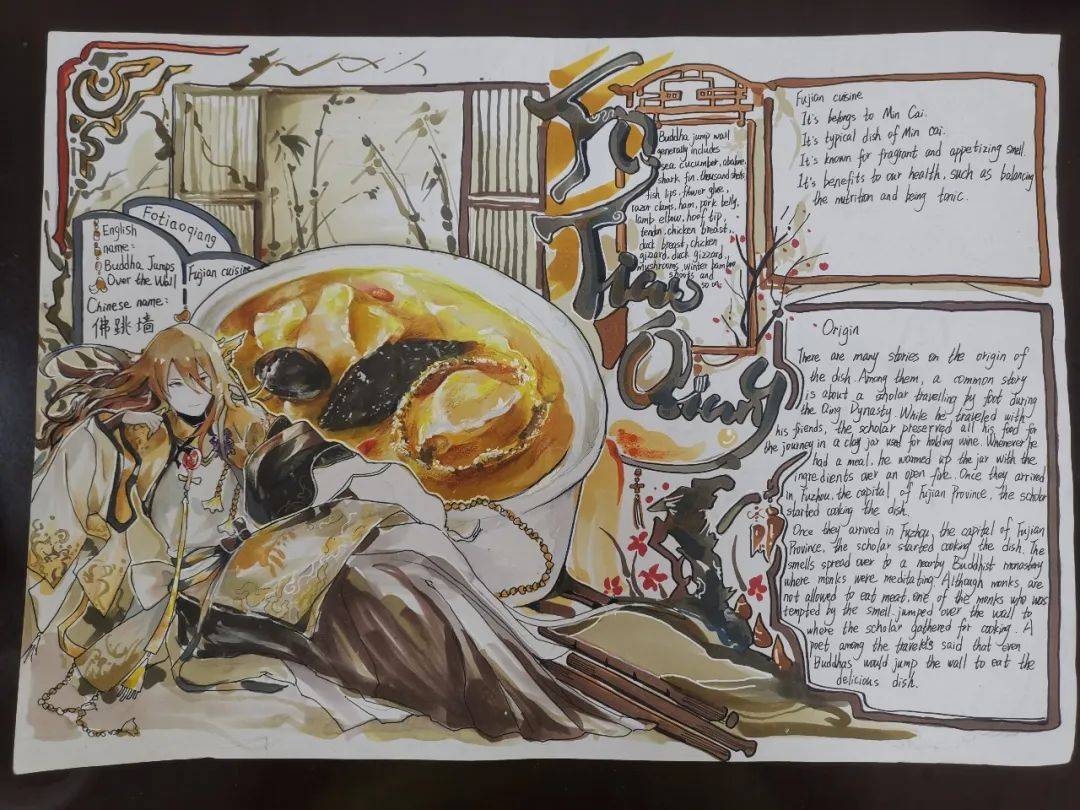 Fotiaoqiang
English
name:
Buddha Jumps
Over the Wall
Chinese name:
佛跳墙
Fujian cuisine
Fo
Tiao
Qiang
Buddha jump wall
generally includes
sea cucumber, abalone,
shark fin, thousand shells,
fish lips, flower glue,
razor clams, ham, pork belly,
lamb elbow, hoof tip,
tendon, chicken breast,
duck breast, chicken
gizard, duck gizzard,
mushrooms, winter bamboo
shoots and
so on.
Fujian cuisine
It's belongs to Min Cai.
It's typical dish of Min cai.
It's known for fragrant and appetizing smell.
It's benefits to our health, such as balancing
the nutrition and being tonic.
Origin
There are many stories on the origin of
the dish. Among them, a common story
is about a scholar travelling by foot during
the Qing Dynasty. While he traveled with
his friends, the scholar preserved all his food for
the journey in a clay jar used for holding wine. Whenever he
had a meal, he warmed up the jar with the
ingredients over an open fire. Once they arrived
in Fuzhou, the capital of Fujian Province, the scholar
started cooking the dish.
Once they arrived in Fuzhou, the capital of Fujian
Province, the scholar started cooking the dish. The
smells spread over to a nearby Buddhist monastery
where monks were meditating. Although monks are
not allowed to eat meat, one of the monks who was
tempted by the smell jumped over the wall to
where the scholar gathered for cooking. A
poet among the said that even
Buddhas would jump the wall to eat the
delicious dish.